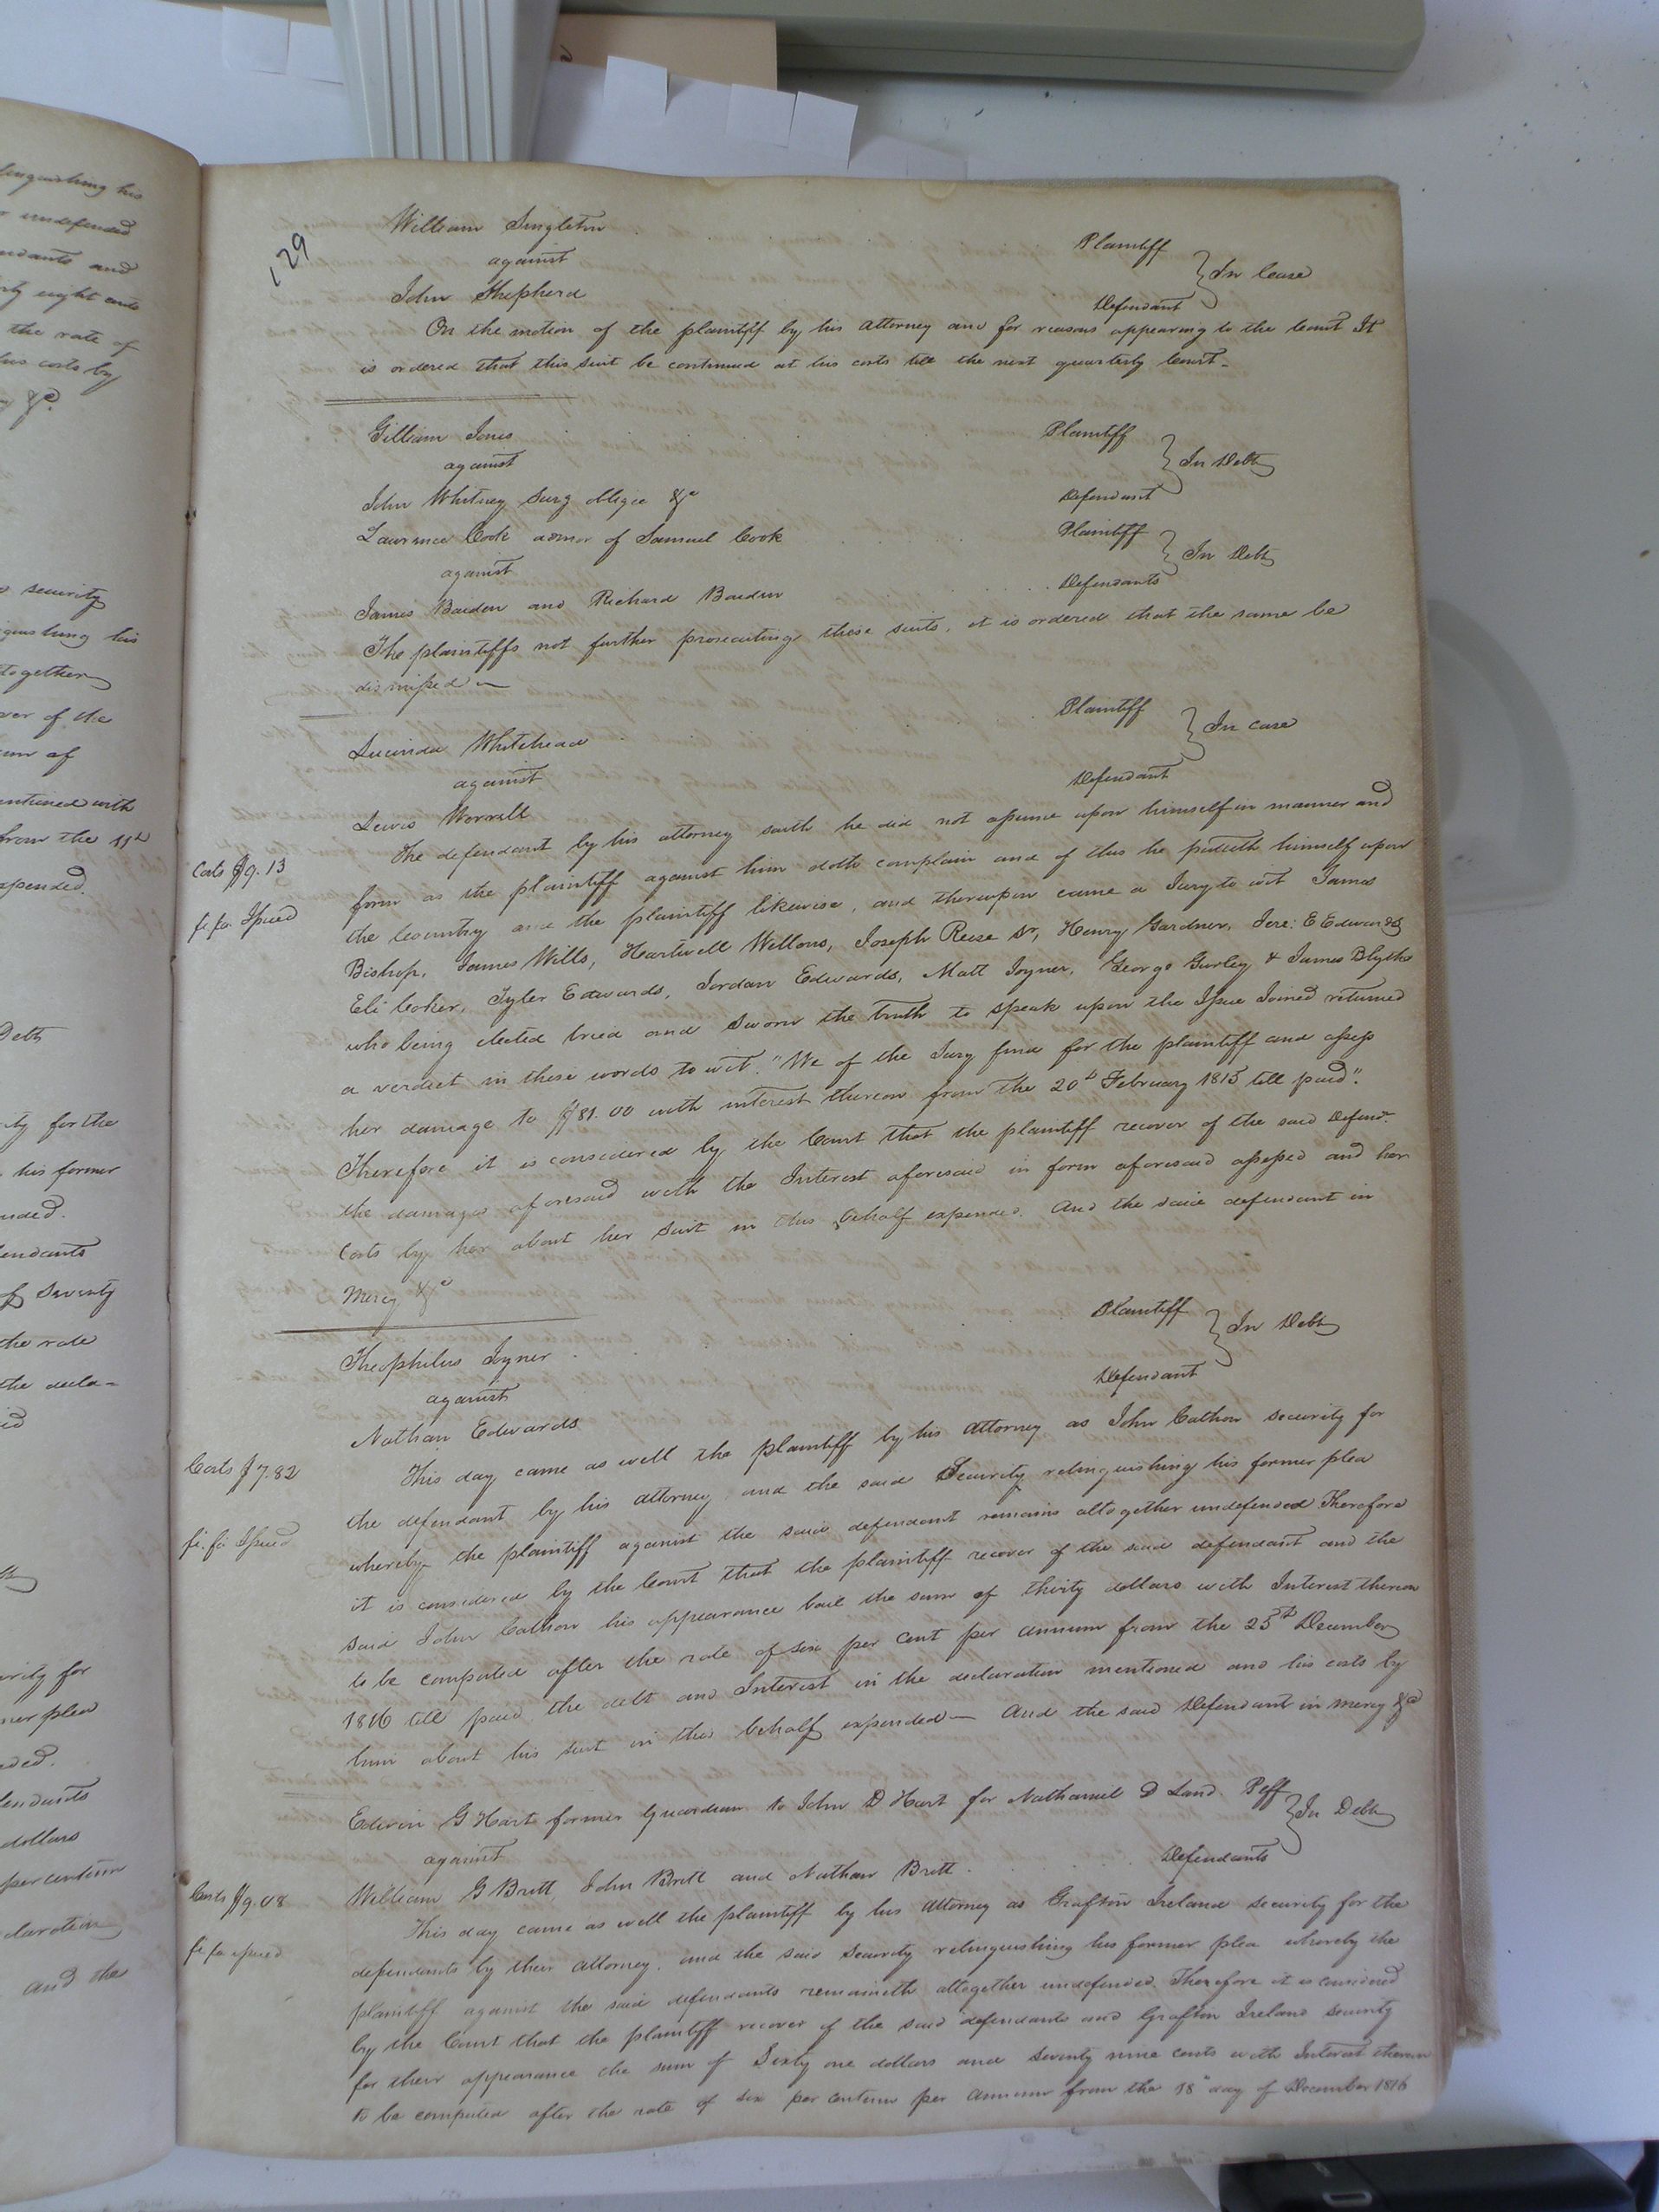 129
William Singleton Plaintiff
against } In Case
John Shepherd Defendant
On the motion of the plaintiff by his attorney and for reasons appearing to the Court It
is ordered that this suit be continued at his costs till the next quarterly Court.
Gilliam Jones Plaintiff
against } In Debt
John Whitney Surg obligee &c Defendant
Laurence Cook admor of Samuel Cook Plaintiff
against } In Debt
James Barden and Richard Barden Defendants
The plaintiffs not further prosecuting these suits, it is ordered that the same be
dismissed
Lucinda Whitehead Plaintiff
against } In case
Lewis Worrell Defendant
The defendant by his attorney saith he did not assume upon himself in manner and
Costs $9.13
form as the plaintiff against him doth complain and of this he putteth himself upon
fi fa Issued
the Country and the plaintiff likewise, and thereupon came a Jury to wit James
Bishop, James Wills, Hartwell Vellons, Joseph Reese Sr, Henry Gardner, Jere: E Edwards
Eli Coker, Tyler Edwards, Jordan Edwards, Matt Joyner, George Gurley & James Blythe
who being elected tried and sworn the truth to speak upon the Issue Joined returned
a verdict in these words to wit. "We of the Jury find for the plaintiff and assess
her damage to $81.00 with interest thereon from the 20th February 1815 till paid".
Therefore it is considered by the Court that the plaintiff recover of the said Defendt
the damages aforesaid with the Interest aforesaid in form aforesaid assessed and her
Costs by her about her suit in this behalf expended. And the said defendant in
Mercy &c
Theophilus Joyner Plaintiff
against } In Debt
Nathan Edwards Defendant
This day came as well the plaintiff by his attorney as John Cathon security for
Costs $7.82
the defendant by his attorney and the said Security relinquishing his former plea
fi. fa Issued
whereby the plaintiff against the said defendant remains altogether undefended Therefore
it is considered by the Court that the plaintiff recover of the said defendant and the
said John Cathon his appearance bail the sum of thirty dollars with Interest thereon
to be computed after the rate of six per cent per annum from the 25th December
1816 till paid the debt and Interest in the declaration mentioned and his costs by
him about his suit in this behalf expended And the said Defendant in mercy &c
Edwin G Hart former Guardian to John D Hart for Nathaniel D Land Plff
against } In Debt
William G Britt, John Britt and Nathan Britt Defendants
Costs $9.08
This day came as well the plaintiff by his attorney as Grafton Ireland security for the
fi fa issued
defendants by their attorney. and the said Security relinquishing his former plea whereby the
plaintiff against the said defendants remaineth altogether undefended. Therefore it is considered
by the Court that the plaintiff recover of the said defendants and Grafton Ireland security
for their appearance the sum of Sixty one dollars and seventy nine cents with Interest thereon
to be computed after the rate of six per centum per annum from the 18th day of December 1816